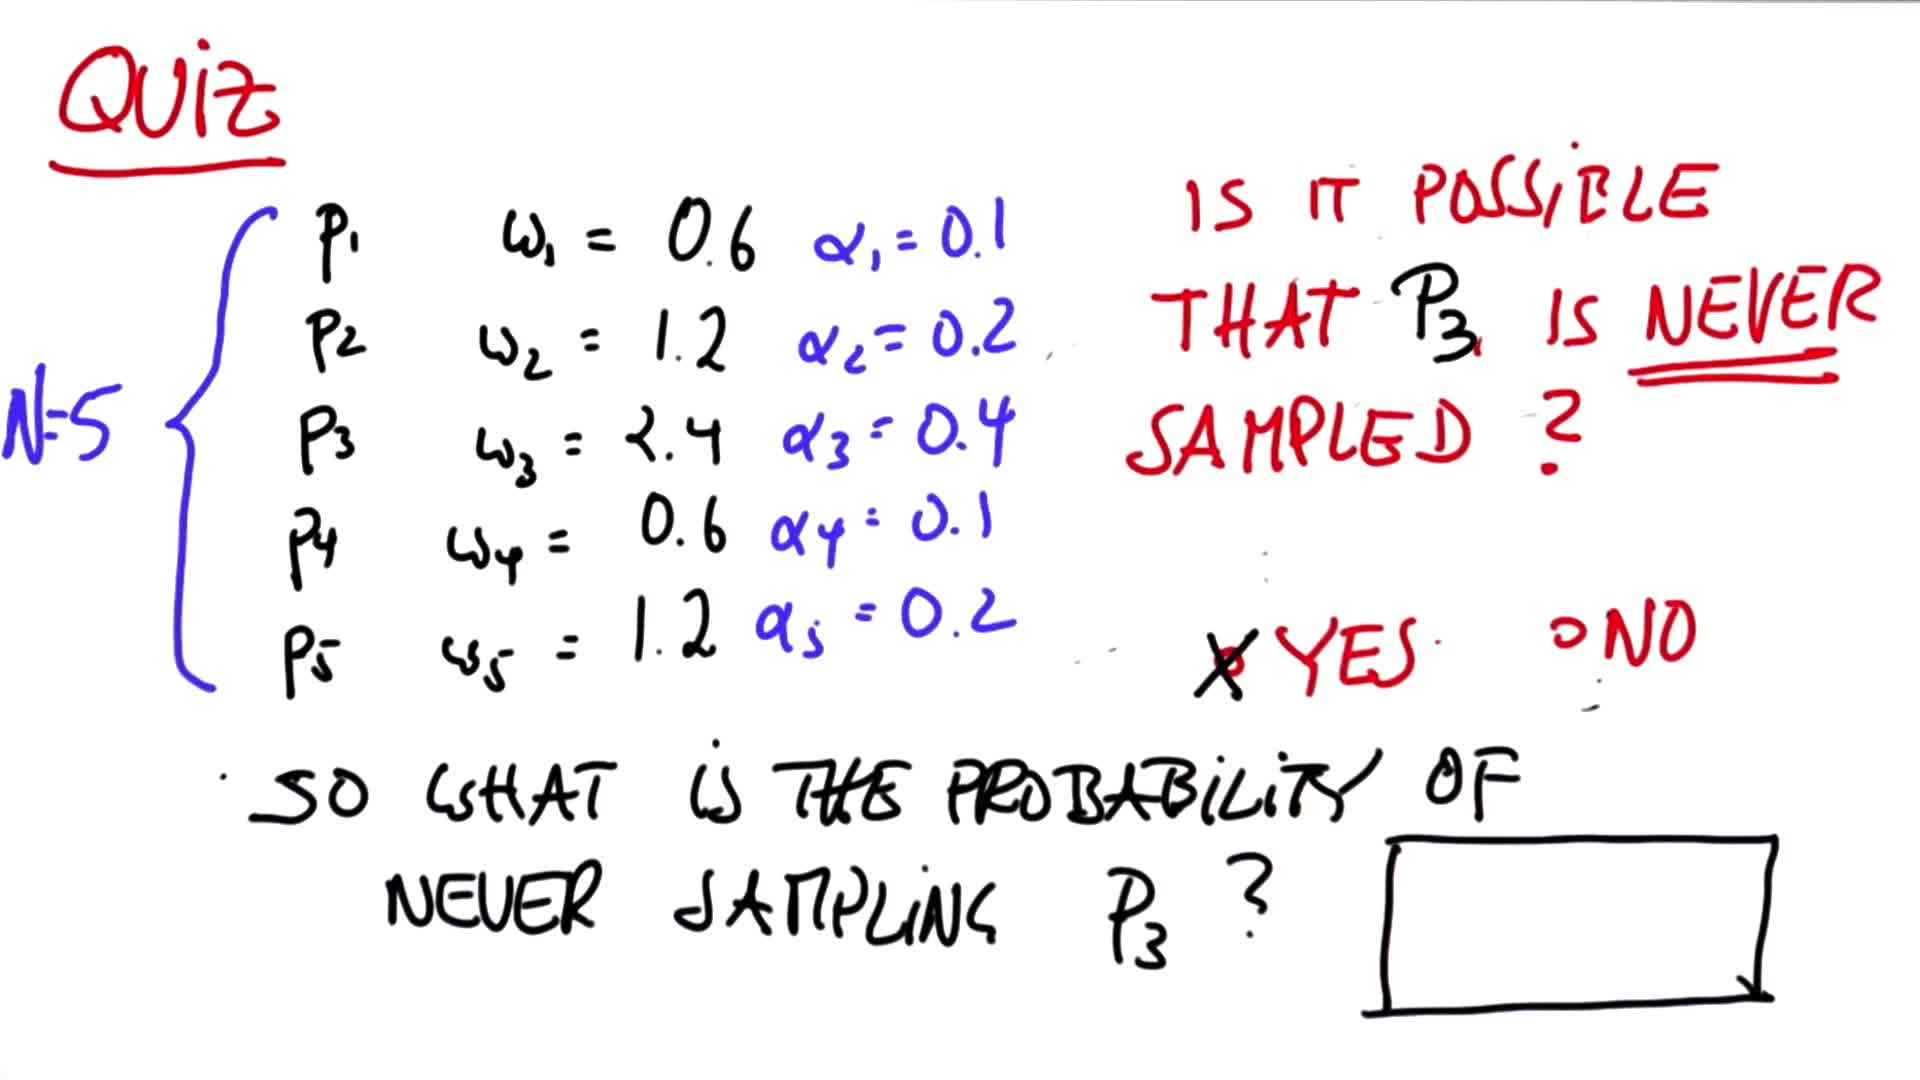 QUIZ
N=5
P1 ω1 = 0.6 α1 = 0.1
P2 ω2 = 1.2 α2 = 0.2
P3 ω3 = 2.4 α3 = 0.4
P4 ω4 = 0.6 α4 = 0.1
P5 ω5 = 1.2 α5 = 0.2
IS IT POSSIBLE
THAT P3 IS NEVER
SAMPLED ?
X YES O NO
SO WHAT IS THE PROBABILITY OF
NEVER SAMPLING P3 ?